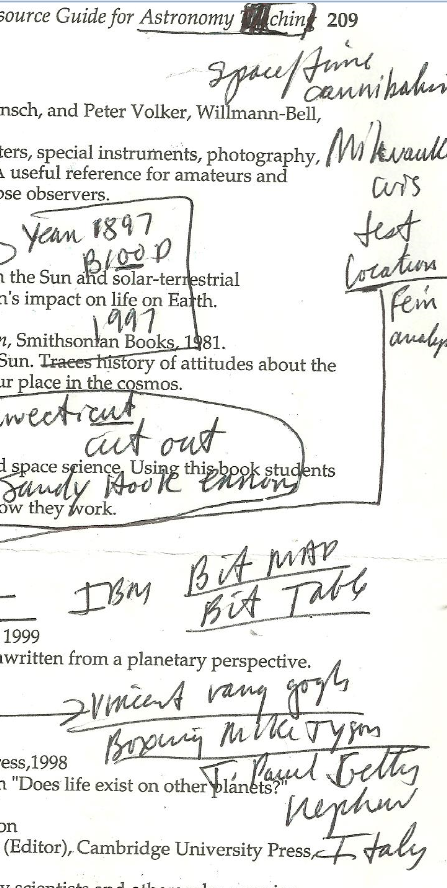 source Guide for Astronomy ching 209
space/time
cannibalism
nsch, and Peter Volker, Willmann-Bell,
ters, special instruments, photography,
A useful reference for amateurs and
ose observers.
Milwauk
test
Location
Year 1897
BlOOD
n the Sun and solar-terrestrial
n's impact on life on Earth.
1997
n, Smithsonian Books, 1981.
Sun. Traces history of attitudes about the
ur place in the cosmos.
Fein
analys
nnecticut
cut out
d space science. Using this book students
Sandy Hook
ow they work.
IBM
BiT MAP
BiT Table
1999
written from a planetary perspective.
Vincent vang gogh
Boxing Mike Tyson
ress,1998
J. Paul Getty
n "Does life exist on other planets?"
Nephew
on
(Editor), Cambridge University Press,
Italy